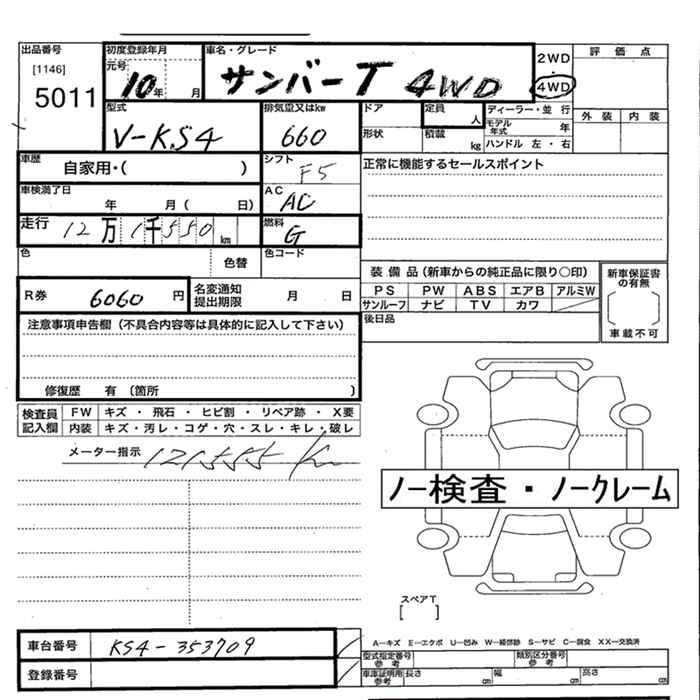 出品番号 初度登録年月 車名・グレード 2WD 評価点
[1146] 元号 ・
5011 10年 月 サンバーT 4WD 4WD
型式 排気量又はkw ドア 定員 人 ディーラー・並行 外装 内装
V-KS4 660 形状 積載 kg モデル年式 年
ハンドル 左・右
車歴 自家用・( ) シフト F5 正常に機能するセールスポイント
車検満了日 年 月( 日) AC AC
走行 12万1千550km 燃料 G
色 色替 色コード
装備品(新車からの純正品に限り○印) 新車保証書の有無
R券 6060円 名変通知提出期限 月 日 PS PW ABS エアB アルミW
サンルーフ ナビ TV カワ
注意事項申告欄(不具合内容等は具体的に記入して下さい) 後日品 車載不可
修復歴 有 (箇所 )
検査員記入欄 FW キズ・飛石・ヒビ割・リペア跡・X要
内装 キズ・汚レ・コゲ・穴・スレ・キレ・破レ
メーター指示 121555 Km
ノー検査・ノークレーム
スペアT
[ ]
車台番号 KS4-353709 A-キズ E-エクボ U-凹み W-補修跡 S-サビ C-腐食 XX-交換済
型式指定番号参考 類別区分番号参考
登録番号 車庫証明用参考 長さ cm 幅 cm 高さ cm